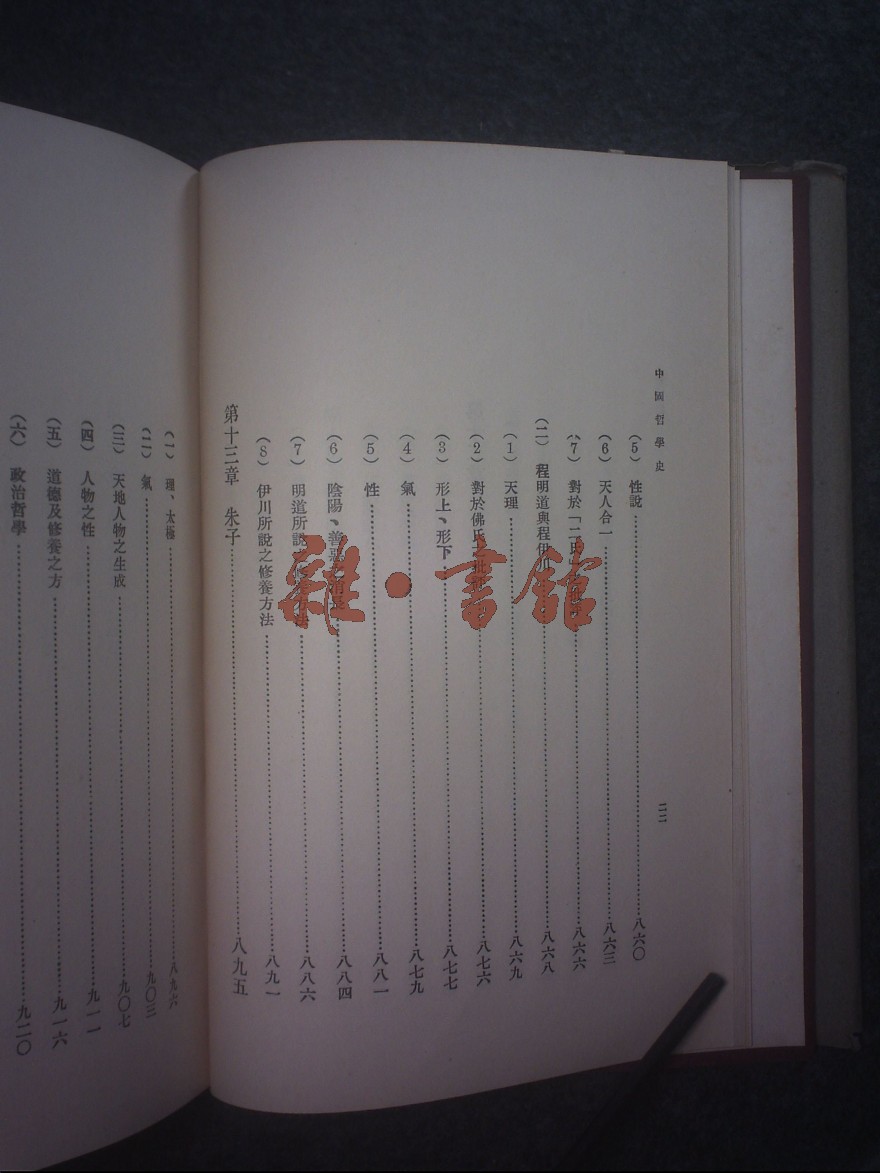 中國哲學史
二二
(5) 性說……八六〇
(6) 天人合一……八六三
(7) 對於「二氏……八六六
(二) 程明道與程伊川……八六八
(1) 天理……八六九
(2) 對於佛氏之批評……八七六
(3) 形上、形下……八七七
(4) 氣……八七九
(5) 性……八八一
(6) 陰陽、善惡之消長……八八四
(7) 明道所說之修養方法……八八六
(8) 伊川所說之修養方法……八九一
第十三章 朱子……八九五
(一) 理、太極……八九六
(二) 氣……九〇三
(三) 天地人物之生成……九〇七
(四) 人物之性……九一一
(五) 道德及修養之方……九一六
(六) 政治哲學……九二〇
雜·書館